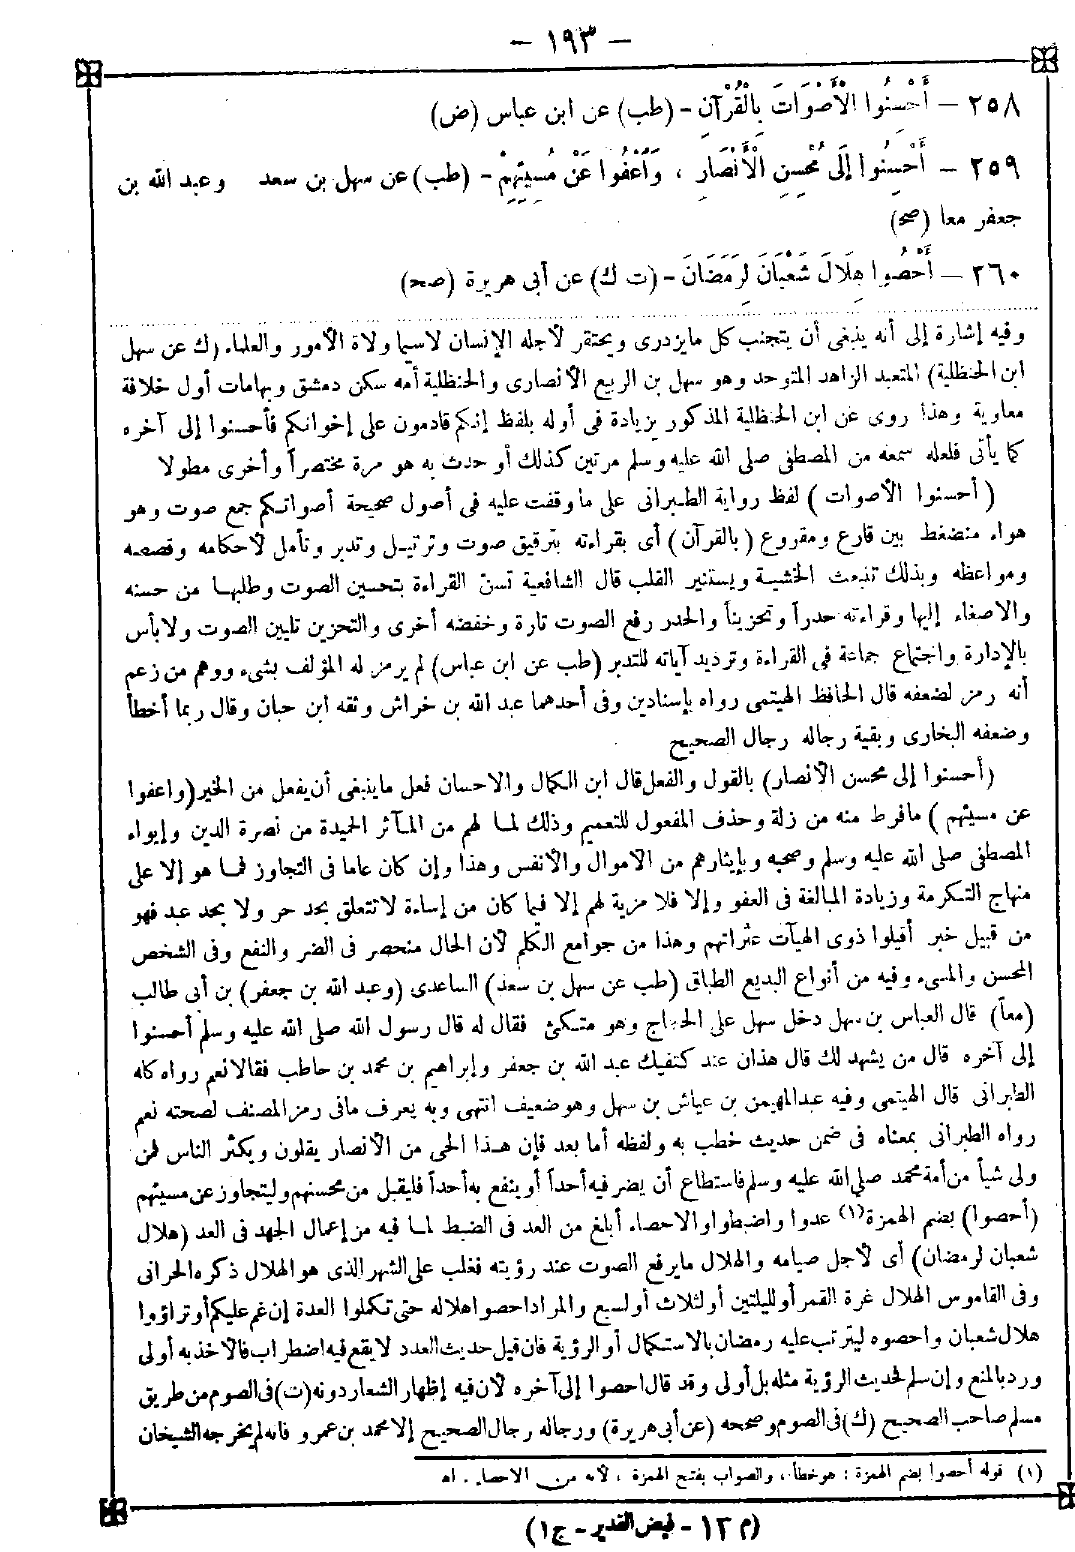 – ١٩٣ –
٢٥٨ – أَحْسِنُوا الْأَصْوَاتَ بِالْقُرْآنِ – (طب) عن ابن عباس (ض)
٢٥٩ – أَحْسِنُوا إِلَى مُحْسِنِ الْأَنْصَارِ ، وَاَعْفُوا عَنْ مُسِيئِهِمْ – (طب) عن سهل بن سعد وعبد الله بن
جعفر معا (صح)
٢٦٠ – أَحْصُوا هِلَالَ شَعْبَانَ لِرَمَضَانَ – (ت ك) عن أبى هريرة (صح)
وفيه إشارة إلى أنه ينبغى أن يتجنب كل مايزدرى ويحتقر لأجله الإنسان لاسيما ولاة الأمور والعلماء (ك عن سهل
ابن الحنظلية) المتعبد الزاهد المتوحد وهو سهل بن الربيع الأنصارى والحنظلية أمه سكن دمشق وبهامات أول خلافة
معاوية وهذا روى عن ابن الحنظلية المذكور بزيادة فى أوله بلفظ إنكم قادمون على إخوانكم فأحسنوا إلى آخره
كما يأتى فلعله سمعه من المصطفى صلى الله عليه وسلم مرتين كذلك أو حدث به هو مرة مختصراً وأخرى مطولا
( أحسنوا الأصوات ) لفظ رواية الطبرانى على ماوقفت عليه فى أصول صحيحة أصواتكم جمع صوت وهو
هواء منضغط بين قارع ومقروع (بالقرآن) أى بقراءته بترقيق صوت وترتيل وتدبر وتأمل لأحكامه وقصصه
ومواعظه وبذلك تنبعث الخشية ويستنير القلب قال الشافعية تسن القراءة بتحسين الصوت وطلبها من حسنه
والاصغاء إليها وقراءته حدراً وتحزيناً والحدر رفع الصوت تارة وخفضه أخرى والتحزين تليين الصوت ولابأس
بالإدارة واجتماع جماعة فى القراءة وترديد آياته للتدبر (طب عن ابن عباس) لم يرمز له المؤلف بشىء ووهم من زعم
أنه رمز لضعفه قال الحافظ الهيتمى رواه بإسنادين وفى أحدهما عبد الله بن خراش وثقه ابن حبان وقال ربما أخطأ
وضعفه البخارى وبقية رجاله رجال الصحيح
(أحسنوا إلى محسن الأنصار) بالقول والفعل قال ابن الكمال والاحسان فعل ماينبغى أن يفعل من الخير (واعفوا
عن مسيئهم ) مافرط منه من زلة وحذف المفعول للتعميم وذلك لما لهم من المآثر الحميدة من نصرة الدين وإيواء
المصطفى صلى الله عليه وسلم وصحبه وبإيثارهم من الأموال والأنفس وهذا وإن كان عاما فى التجاوز فما هو إلا على
منهاج التكرمة وزيادة المبالغة فى العفو وإلا فلا مزية لهم إلا فيما كان من إساءة لاتتعلق بحد حر ولا بحد عبد فهو
من قبيل خبر أقيلوا ذوى الهيآت عثراتهم وهذا من جوامع الكلم لأن الحال منحصر فى الضر والنفع وفى الشخص
المحسن والمسىء وفيه من أنواع البديع الطباق (طب عن سهل بن سعد) الساعدى (وعبد الله بن جعفر) بن أبى طالب
(معاً) قال العباس بن سهل دخل سهل على الحجاج وهو متكئ فقال له قال رسول الله صلى الله عليه وسلم أحسنوا
إلى آخره قال من يشهد لك قال هذان عند كنفيك عبد الله بن جعفر وإبراهيم بن محمد بن حاطب فقالا نعم رواه كله
الطبرانى قال الهيتمى وفيه عبدالمهيمن بن عياش بن سهل وهو ضعيف انتهى وبه يعرف مافى رمز المصنف لصحته نعم
رواه الطبرانى بمعناه فى ضمن حديث خطب به ولفظه أما بعد فإن هذا الحى من الأنصار يقلون ويكثر الناس فمن
ولى شيأ من أمة محمد صلى الله عليه وسلم فاستطاع أن يضر فيه أحداً أو ينفع به أحداً فليقبل من محسنهم وليتجاوز عن مسيئهم
(أحصوا) بضم الهمزة (١) عدوا واضبطوا والاحصاء أبلغ من العد فى الضبط لما فيه من إعمال الجهد فى العد (هلال
شعبان لرمضان) أى لأجل صيامه والهلال مايرفع الصوت عند رؤيته فغلب على الشهر الذى هو الهلال ذكره الحرانى
وفى القاموس الهلال غرة القمر أو لليلتين أو لثلاث أو لسبع والمراد احصوا هلاله حتى تكملوا العدة إن غم عليكم أو تراؤوا
هلال شعبان واحصوه ليترتب عليه رمضان بالاستكمال أو الرؤية فان قيل حديث العدد لايقع فيه اضطراب فالأخذ به أولى
ورد بالمنع وإن سلم لحديث الرؤية مثله بل أولى وقد قال احصوا إلى آخره لأن فيه إظهار الشعار دونه (ت) فى الصوم من طريق
مسلم صاحب الصحيح (ك) فى الصوم وصححه (عن أبى هريرة) ورجاله رجال الصحيح إلا محمد بن عمرو فانه لم يخرجه الشيخان
(١) قوله أحصوا بضم الهمزة : هو خطأ ، والصواب بفتح الهمزة ، لأنه من الاحصاء . اه
(م ١٢ - فيض القدير - ج ١)